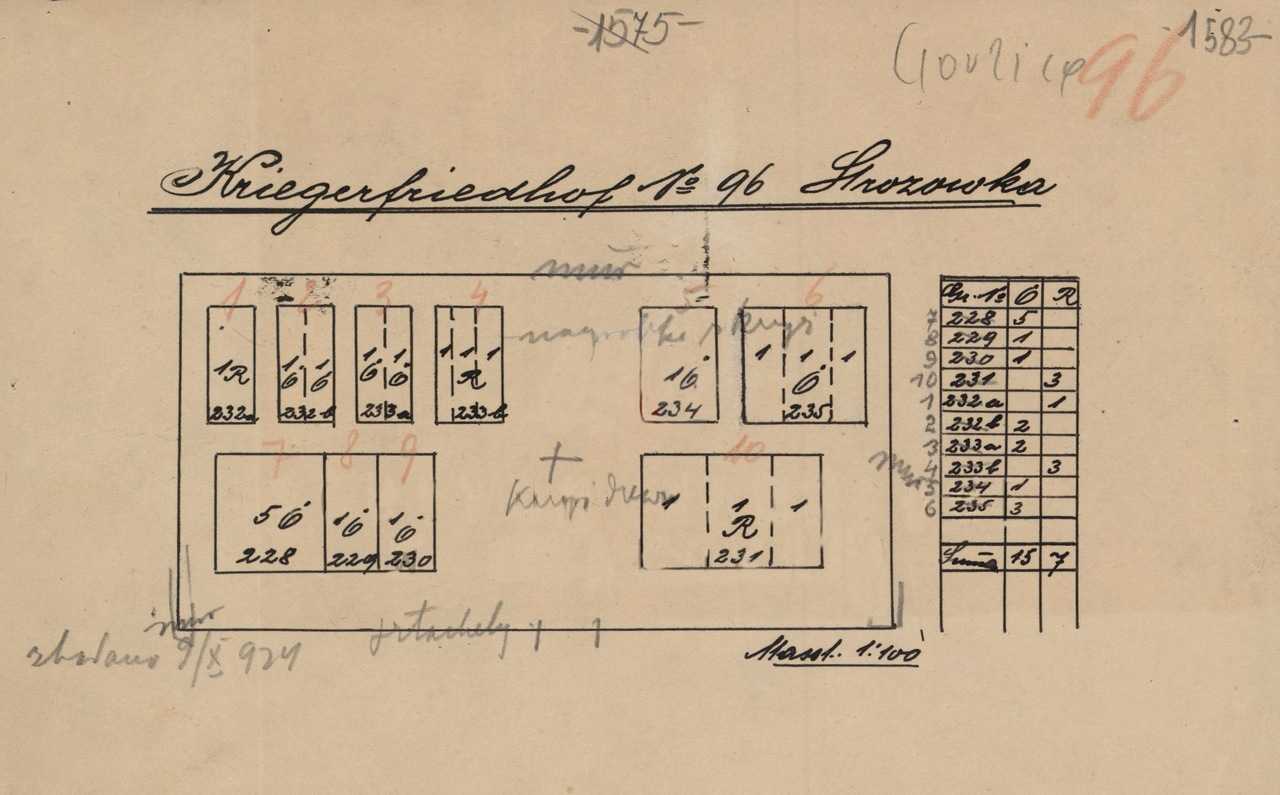 -1575-
-1583-
Gorlice 96
Kriegerfriedhof No 96 Strozowka
mur
1 2 3 4 5 6
nagrobki i krzyże
1 R
232a
1 Ö 1 Ö
232b
1 Ö 1 Ö
233a
1 1 1
R
233b
1 Ö
234
1 1 1
Ö
235
7 8 9 10
5 Ö
228
1 Ö
229
1 Ö
230
1 1 1
R
231
mur
mur
sztachety
zbadano 9/X 924
Masst. 1:100
Gr. No Ö R
7 228 5
8 229 1
9 230 1
10 231 3
1 232a 1
2 232b 2
3 233a 2
4 233b 3
5 234 1
6 235 3
Suma 15 7